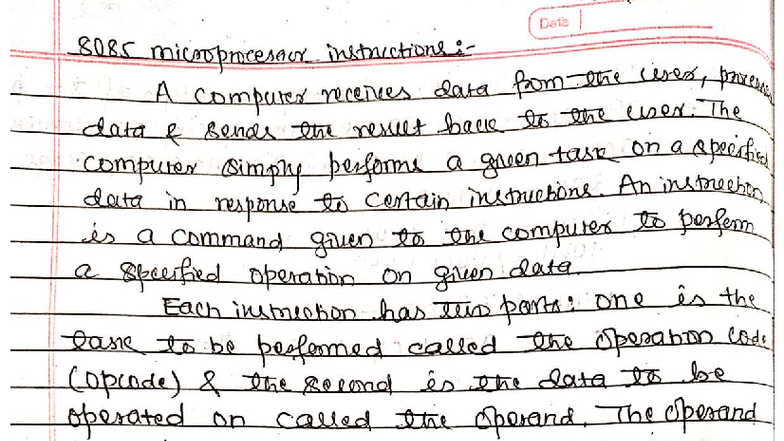 Date
8085 microprocessor instructions :-
A computer receives data from the user, process
data & sends the result back to the user. The
computer simply performs a given task on a specified
data in response to certain instructions. An instruction
is a command given to the computer to perform
a specified operation on given data.
Each instruction has two parts: one is the
task to be performed called the operation code
(opcode) & the second is the data to be
operated on called the operand. The operand